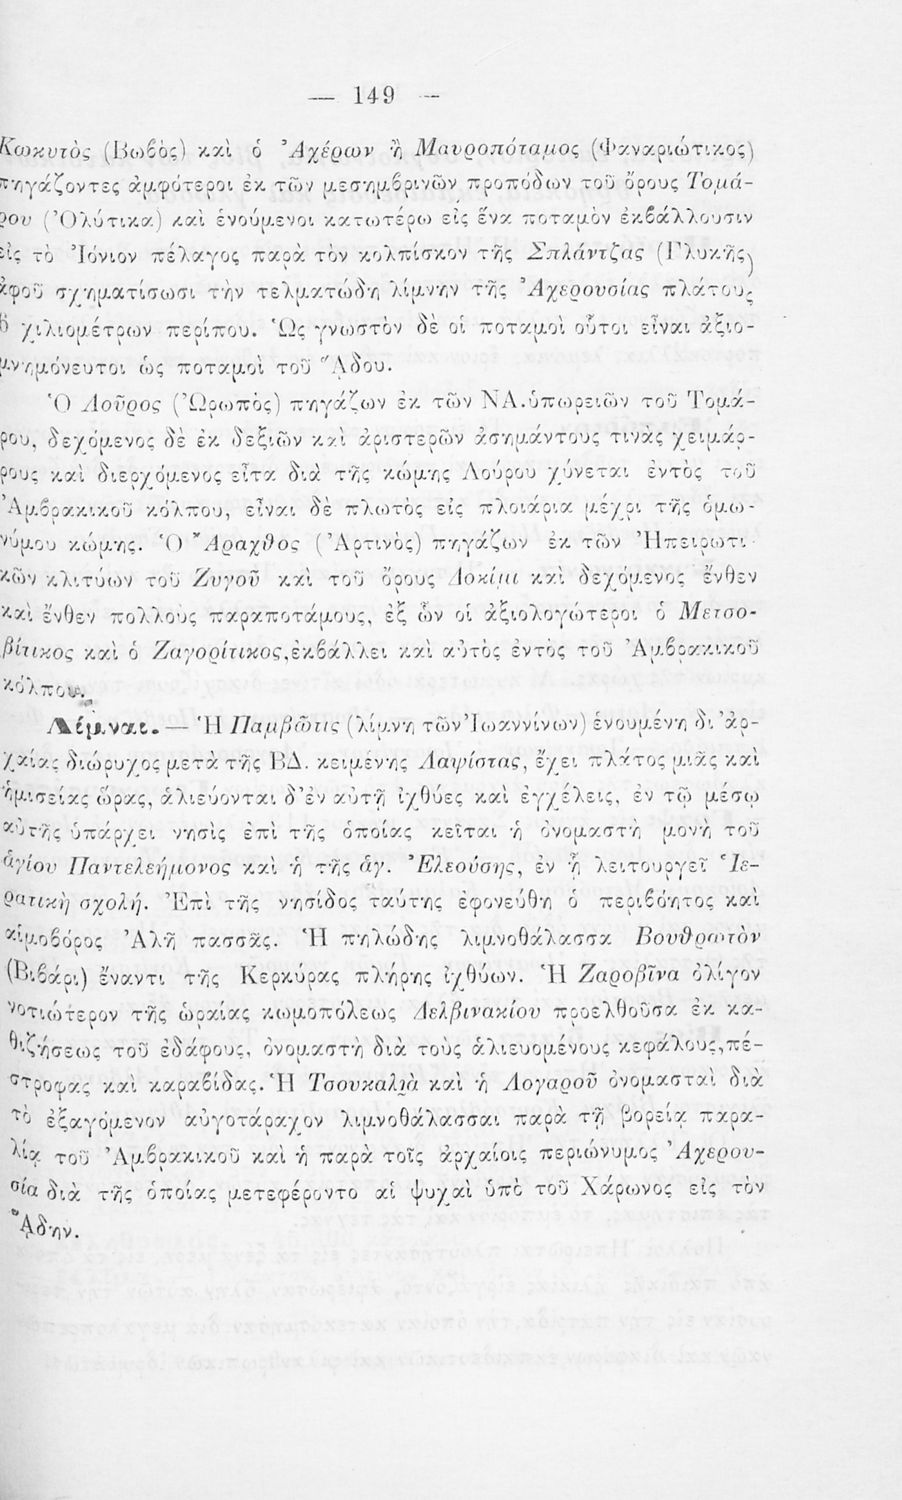 — 149 —
Κωκυτὸς (Βωβὸς) καὶ ὁ Ἀχέρων ἢ Μαυροπόταμος (Φαναριώτικος)
πηγάζοντες ἀμφότεροι ἐκ τῶν μεσημβρινῶν προπόδων τοῦ ὄρους Τομά-
ρου (Ὀλύτικα) καὶ ἑνούμενοι κατωτέρω εἰς ἕνα ποταμὸν ἐκβάλλουσιν
εἰς τὸ Ἰόνιον πέλαγος παρὰ τὸν κολπίσκον τῆς Σπλάντζας (Γλυκῆς)
ἀφοῦ σχηματίσωσι τὴν τελματώδη λίμνην τῆς Ἀχερουσίας πλάτους
6 χιλιομέτρων περίπου. Ὡς γνωστὸν δὲ οἱ ποταμοὶ οὗτοι εἶναι ἀξιο-
μνημόνευτοι ὡς ποταμοὶ τοῦ Ἅδου.
Ὁ Λοῦρος (Ὠρωπὸς) πηγάζων ἐκ τῶν ΝΑ.ὑπωρειῶν τοῦ Τομά-
ρου, δεχόμενος δὲ ἐκ δεξιῶν καὶ ἀριστερῶν ἀσημάντους τινὰς χειμάρ-
ρους καὶ διερχόμενος εἶτα διὰ τῆς κώμης Λούρου χύνεται ἐντὸς τοῦ
Ἀμβρακικοῦ κόλπου, εἶναι δὲ πλωτὸς εἰς πλοιάρια μέχρι τῆς ὁμω-
νύμου κώμης. Ὁ Ἄραχθος (Ἀρτινὸς) πηγάζων ἐκ τῶν Ἠπειρωτι-
κῶν κλιτύων τοῦ Ζυγοῦ καὶ τοῦ ὄρους Δοκίμι καὶ δεχόμενος ἔνθεν
καὶ ἔνθεν πολλοὺς παραποτάμους, ἐξ ὧν οἱ ἀξιολογώτεροι ὁ Μετσο-
βίτικος καὶ ὁ Ζαγορίτικος,ἐκβάλλει καὶ αὐτὸς ἐντὸς τοῦ Ἀμβρακικοῦ
κόλπου.
Λίμναι. — Ἡ Παμβῶτις (λίμνη τῶν Ἰωαννίνων) ἑνουμένη δι᾽ ἀρ-
χαίας διώρυχος μετὰ τῆς ΒΔ. κειμένης Λαψίστας, ἔχει πλάτος μιᾶς καὶ
ἡμισείας ὥρας, ἁλιεύονται δ᾽ἐν αὐτῇ ἰχθύες καὶ ἐγχέλεις, ἐν τῷ μέσῳ
αὐτῆς ὑπάρχει νησὶς ἐπὶ τῆς ὁποίας κεῖται ἡ ὀνομαστὴ μονὴ τοῦ
ἁγίου Παντελεήμονος καὶ ἡ τῆς ἁγ. Ἐλεούσης, ἐν ᾗ λειτουργεῖ Ἱε-
ρατικὴ σχολή. Ἐπὶ τῆς νησίδος ταύτης ἐφονεύθη ὁ περιβόητος καὶ
αἱμοβόρος Ἀλῆ πασσᾶς. Ἡ πηλώδης λιμνοθάλασσα Βουθρωτὸν
(Βιβάρι) ἔναντι τῆς Κερκύρας πλήρης ἰχθύων. Ἡ Ζαροβῖνα ὀλίγον
νοτιώτερον τῆς ὡραίας κωμοπόλεως Δελβινακίου προελθοῦσα ἐκ κα-
θιζήσεως τοῦ ἐδάφους, ὀνομαστὴ διὰ τοὺς ἁλιευομένους κεφάλους,πέ-
στροφας καὶ καραβίδας. Ἡ Τσουκαλιὰ καὶ ἡ Λογαροῦ ὀνομασταὶ διὰ
τὸ ἐξαγόμενον αὐγοτάραχον λιμνοθάλασσαι παρὰ τῇ βορείᾳ παρα-
λίᾳ τοῦ Ἀμβρακικοῦ καὶ ἡ παρὰ τοῖς ἀρχαίοις περιώνυμος Ἀχερου-
σία διὰ τῆς ὁποίας μετεφέροντο αἱ ψυχαὶ ὑπὸ τοῦ Χάρωνος εἰς τὸν
ᾍδην.